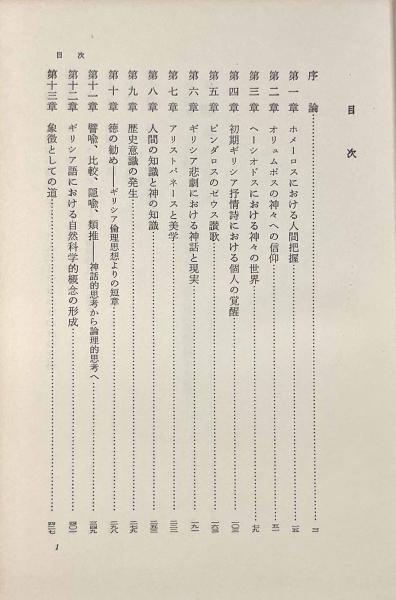 目次
目次
序論 一
第一章 ホメーロスにおける人間把握 一五
第二章 オリュムポスの神々への信仰 五一
第三章 ヘーシオドスにおける神々の世界 七九
第四章 初期ギリシア抒情詩における個人の覚醒 一〇三
第五章 ピンダロスのゼウス讃歌 一六三
第六章 ギリシア悲劇における神話と現実 一九一
第七章 アリストパネースと美学
第八章 人間の知識と神の知識
第九章 歴史意識の発生
第十章 徳の勧め——ギリシア倫理思想よりの短章 二九八
第十一章 譬喩、比較、隠喩、類推——神話的思考から論理的思考へ 三四九
第十二章 ギリシア語における自然科学的概念の形成 四〇一
第十三章 象徴としての道 四二七
1